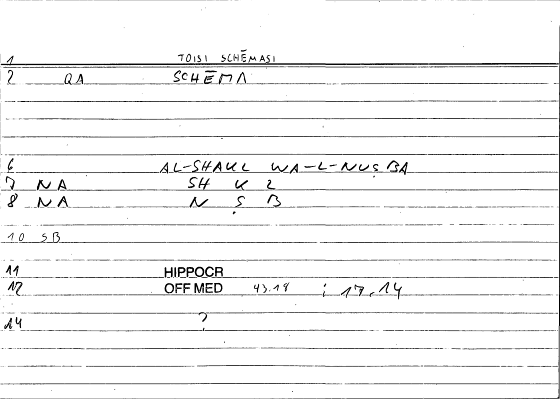 1 TOISI SCHĒMASI
2 QA SCHĒMA
6 AL-SHAKL WA-L-NUṢBA
7 NA SH K L
8 NA N Ṣ B
10 SB
11 HIPPOCR
12 OFF MED 43.18 ; 17.14
14 ?